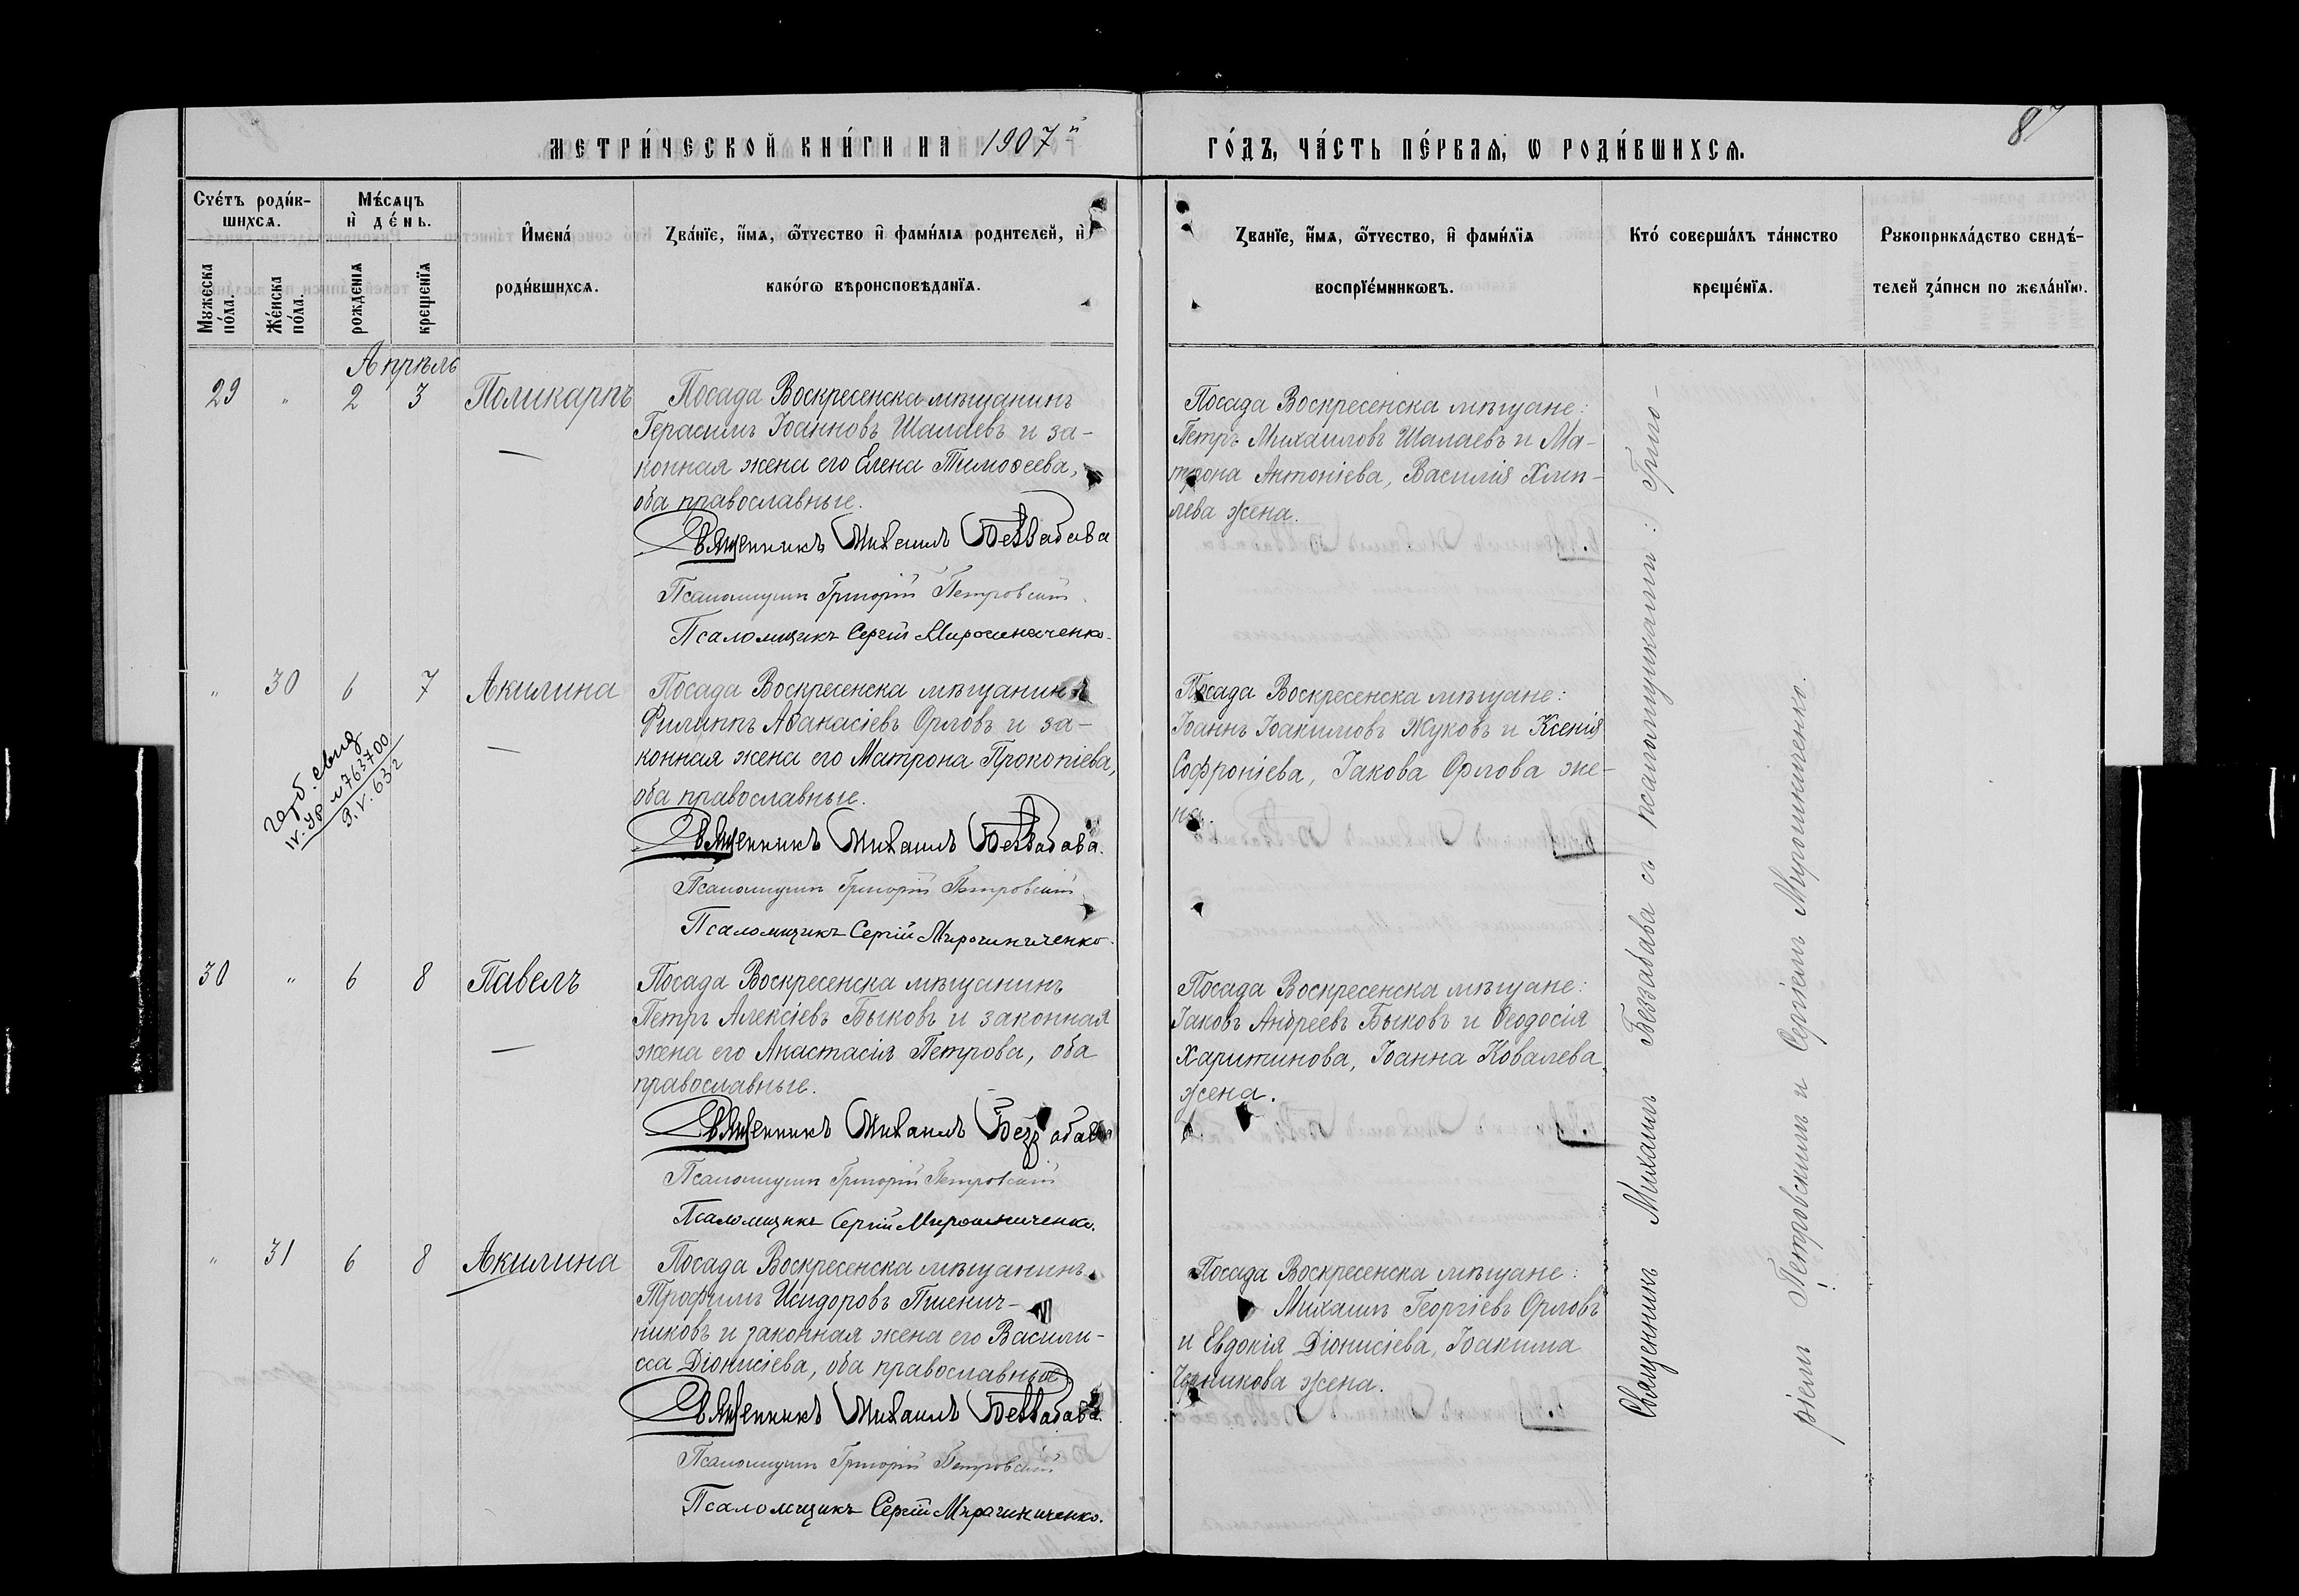 МЕТРИ́ЧЕСКОЙ КНИ́ГИ НА 1907й ГО́ДЪ, ЧА́СТЬ ПЕ́РВАЯ, Ѡ РОДИ́ВШИХСЯ.
87
Счéтъ роди́в-
шихся.
Мꙋжеска
по́ла.
Же́нска
по́ла.
Мѣ́сяцъ
и҆ де́нь.
рожденїя
крещенїя
И҆мена́
роди́вшихся.
Зва́нїе, и҆́мя, ѻ҆́тчество и҆ фами́лїя родителей, и҆
како́гѡ вѣроисповѣданїя.
Званїе, и҆́мя, ѻ҆́тчество, и҆ фами́лїя
воспрїе́мникѡвъ.
Кто́ соверша́лъ та́инство
креще́нїя.
Рꙋкоприкла́дство свидѣ́-
телей за́писи по жела́нїю.
Апрѣль
29 " 2 3 Поликарпъ
Посада Воскресенска мѣщанинъ
Герасимъ Іоанновъ Шалаевъ и за-
конная жена его Елена Тимоѳеева,
оба православные.
Священникъ Михаилъ Беззабава
Псаломщикъ Григорій Петровскій
Псаломщикъ Сергій Мирошниченко.
Посада Воскресенска мѣщане:
Петръ Михаиловъ Шалаевъ и Ма-
трона Антоніева, Василія Хмы-
лева жена.
" 30 6 7 Акилина
герб. свид
9.V.632
Посада Воскресенска мѣщанинъ
Филиппъ Аѳанасіевъ Орловъ и за-
конная жена его Матрона Прокопіева,
оба православные.
Священникъ Михаилъ Беззабава.
Псаломщикъ Григорій Петровскій
Псаломщикъ Сергій Мирошниченко.
Посада Воскресенска мѣщане:
Іоаннъ Іоакимовъ Жуковъ и Ксенія
Софроніева, Іакова Орлова же-
на.
30 " 6 8 Павелъ
Посада Воскресенска мѣщанинъ
Петръ Алексіевъ Быковъ и законная
жена его Анастасія Петрова, оба
православные.
Священникъ Михаилъ Беззабава
Псаломщикъ Григорій Петровскій
Псаломщикъ Сергій Мирошниченко.
Посада Воскресенска мѣщане:
Іаковъ Андреевъ Быковъ и Ѳеодосія
Харитинова, Іоанна Ковалева
жена.
" 31 6 8 Акилина
Посада Воскресенска мѣщанинъ
Трофимъ Исидоровъ Пшенич-
никовъ и законная жена его Васили-
сса Діонисіева, оба православные.
Священникъ Михаилъ Беззабава.
Псаломщикъ Григорій Петровскій
Псаломщикъ Сергій Мирошниченко.
Посада Воскресенска мѣщане:
Михаилъ Георгіевъ Орловъ
и Евдокія Діонисіева, Іоакима
жена.
Священникъ Михаилъ Беззабава съ псаломщиками: Григо-
ріемъ Петровскимъ и Сергіемъ Мирошниченко.